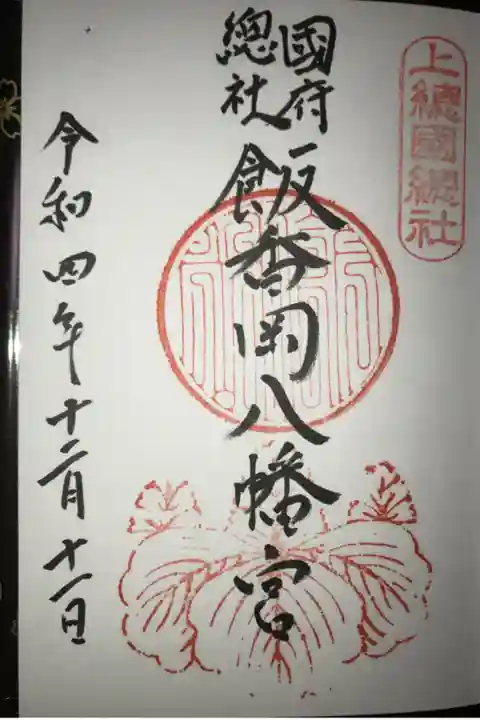 上總國總社
國府
總社
飯香岡八幡宮
令和四年十二月十一日